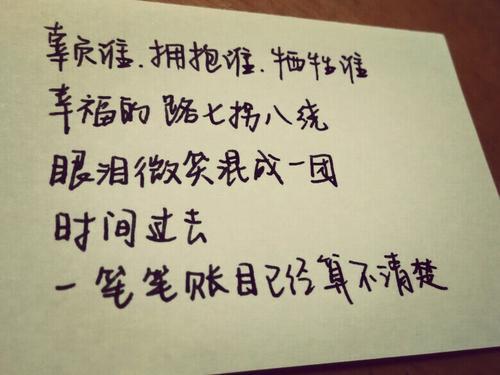 辜负谁.拥抱谁.牺牲谁
幸福的路七拐八绕
眼泪微笑混成一团
时间过去
一笔笔账目已经算不清楚